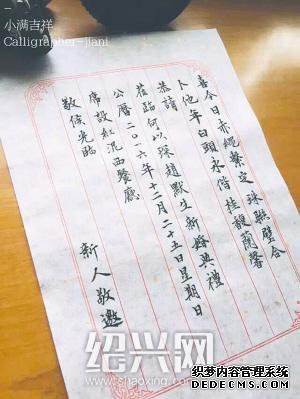 小满吉祥
Calligrapher-jiani
喜今日赤繩繫定 珠聯璧合
卜他年白頭永偕 桂馥蘭馨
恭請
蒞臨何以琛趙默笙新婚典禮
公曆二〇一六年十二月二十五日星期日
席設紅泥西餐廳
敬候光臨
新人敬邀
绍兴网
www.shaoxing.com.cn
织梦内容管理系统
DEDECMS.COM